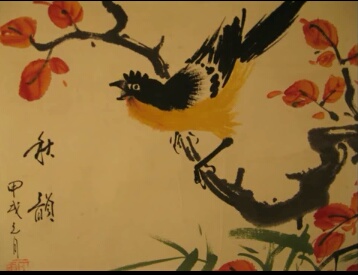 秋韻
甲戌月